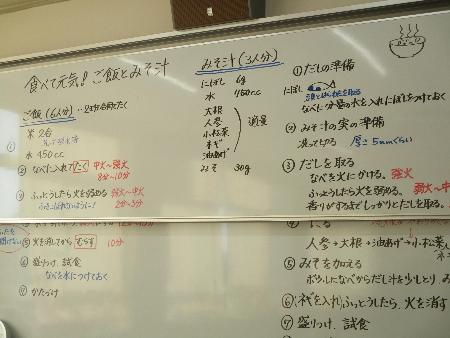 食べて元気！ご飯とみそ汁
ご飯(6人分)
①米 2合
水 450cc
②なべに入れてたく 中火〜強火
8分〜10分
③ふっとうしたら火を弱める 強火〜中火
ふきこぼれないように！ 2分〜3分
⑤火を消してから むらす 10分
⑥盛りつけ、試食
なべを水につけておく
⑦かたづけ
みそ汁(3人分)
にぼし 6g
水 450cc
大根
人参
小松菜
ネギ
油あげ
適量
みそ 30g
①だしの準備
にぼし
なべに分量の水を入れにぼしをつけておく
②みそ汁の実の準備
洗って切る 厚さ5mmくらい
③だしを取る
なべを火にかける。強火
ふっとうしたら火を弱める。弱火〜中
香りがするまでしっかりとだしを取る。
人参→大根→油あげ→小松菜
⑤みそを加える
ボウルになべからだし汁を少しとり
⑥(ネギを入れ)ふっとうしたら、火を消す
⑦盛りつけ、試食